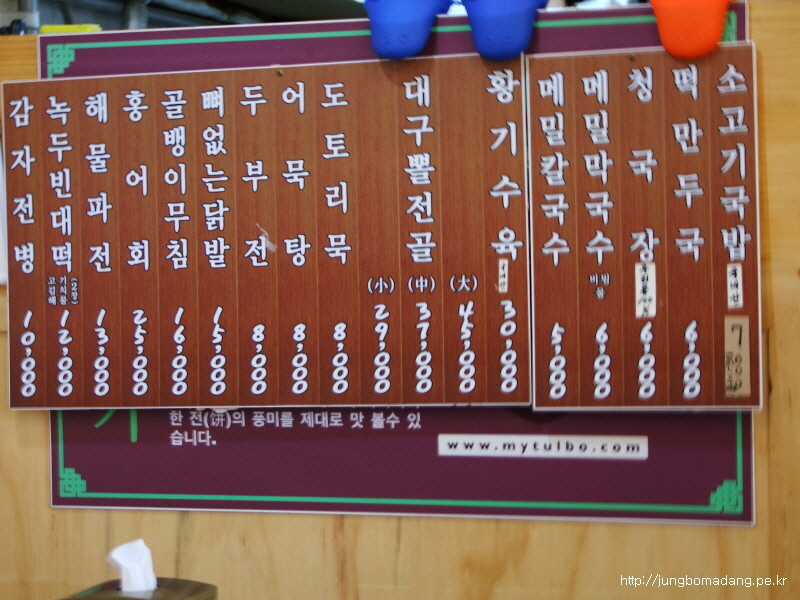 감자전병 10,000
녹두빈대떡 (2장) 고기김치해물 12,000
해물파전 13,000
홍어회 25,000
골뱅이무침 16,000
뼈없는닭발 15,000
두부전 8,000
어묵탕 8,000
도토리묵 8,000
대구뽈전골
(小) 29,000
(中) 37,000
(大) 45,000
황기수육 30,000
메밀칼국수 5,000
메밀막국수 비빔 물 6,000
청국장 6,000
떡만두국 6,000
소고기국밥 국내산
한 전(饼)의 풍미를 제대로 맛 볼수 있
습니다.
www.mytulbo.com
http://jungbomadang.pe.kr